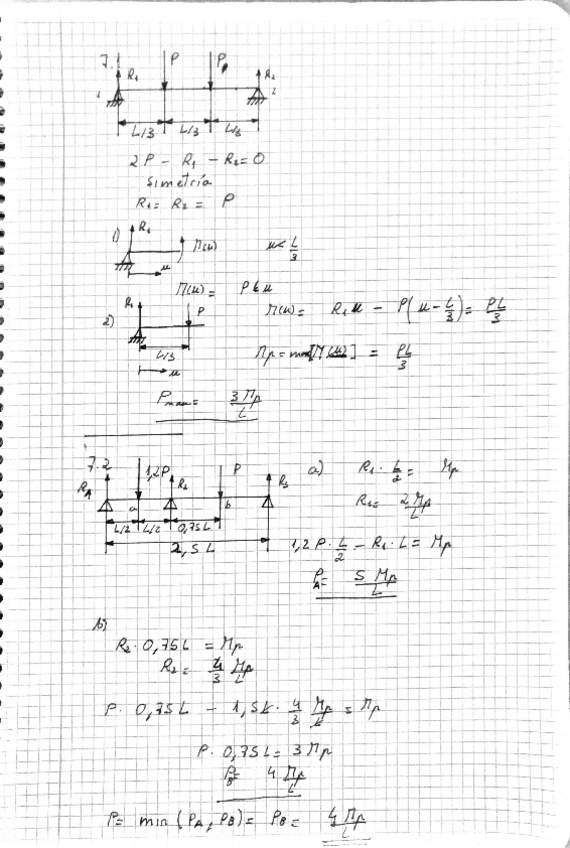 7.1
R₁ P P R₂
1 2
L/3 L/3 L/3
2P - R₁ - R₂ = 0
Simetría
R₁ = R₂ = P
1) R₁ M(u) u < L/3
u
M(u) = P u
2) R₁ P M(u) = R₁ u - P(u - L/3) = PL/3
L/3
u
Mp = max[M(u)] = PL/3
Pmax = 3 Mp/L
7.2
RA 1,2P R₂ P R₃
a b
L/2 L/2 0,75L
2,5 L
a) R₁ · L/2 = Mp
R₁ = 2Mp/L
1,2P · L/2 - R₁ · L = Mp
PA = 5 Mp/L
b)
R₂ · 0,75L = Mp
R₂ = 4/3 Mp/L
P · 0,75L - 1,5L · 4/3 Mp/L = Mp
P · 0,75L = 3 Mp
PB = 4 Mp/L
P = min (PA, PB) = PB = 4 Mp/L